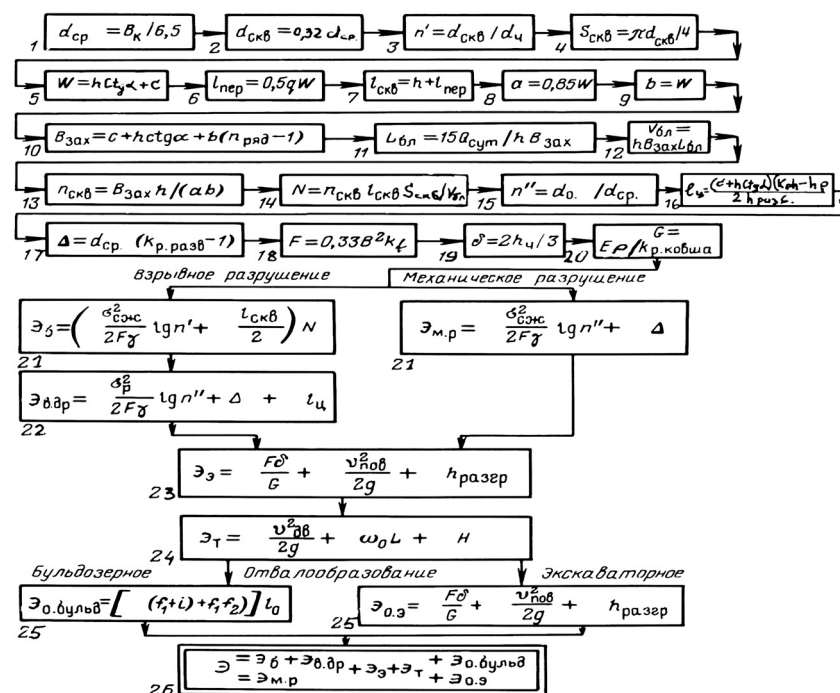 1 d_ср = B_к/6,5
2 d_скв = 0,32 d_ср.
3 n' = d_скв / d_ч
4 S_скв = πd_скв/4
5 W = hctgα + c
6 l_пер = 0,5qW
7 l_скв = h + l_пер
8 a = 0,85W
9 b = W
10 B_зах = c + hctgα + b(n_ряд - 1)
11 L_бл = 15Q_сут / hB_зах
12 V_бл = hB_захL_бл
13 n_скв = B_зах h/(ab)
14 N = n_скв l_скв S_скв/V_бл
15 n'' = d_о. / d_ср.
16 l_ц = (c+hctgα)(K_рh-h_р / 2h_разг.
17 Δ = d_ср. (k_р.разв - 1)
18 F = 0,33B²k_f
19 δ = 2h_ч/3
20 G = Eρ/k_р.ковша
Взрывное разрушение
Механическое разрушение
21 Э_б = (σ²_сж/2Fγ lgn' + l_скв/2) N
21 Э_м.р = σ²_сж/2Fγ lgn'' + Δ
22 Э_в.др = σ²_р/2Fγ lgn'' + Δ + l_ц
23 Э_э = Fδ/G + v²_пов/2g + h_разгр
24 Э_т = v²_дв/2g + ω₀L + H
Бульдозерное Отвалообразование Экскаваторное
25 Э_о.бульд = [ (f₁+i) + f₁f₂)] l₀
25 Э_о.э = Fδ/G + v²_пов/2g + h_разгр
26 Э = Э_б + Э_в.др + Э_э + Э_т + Э_о.бульд
= Э_м.р + Э_о.э